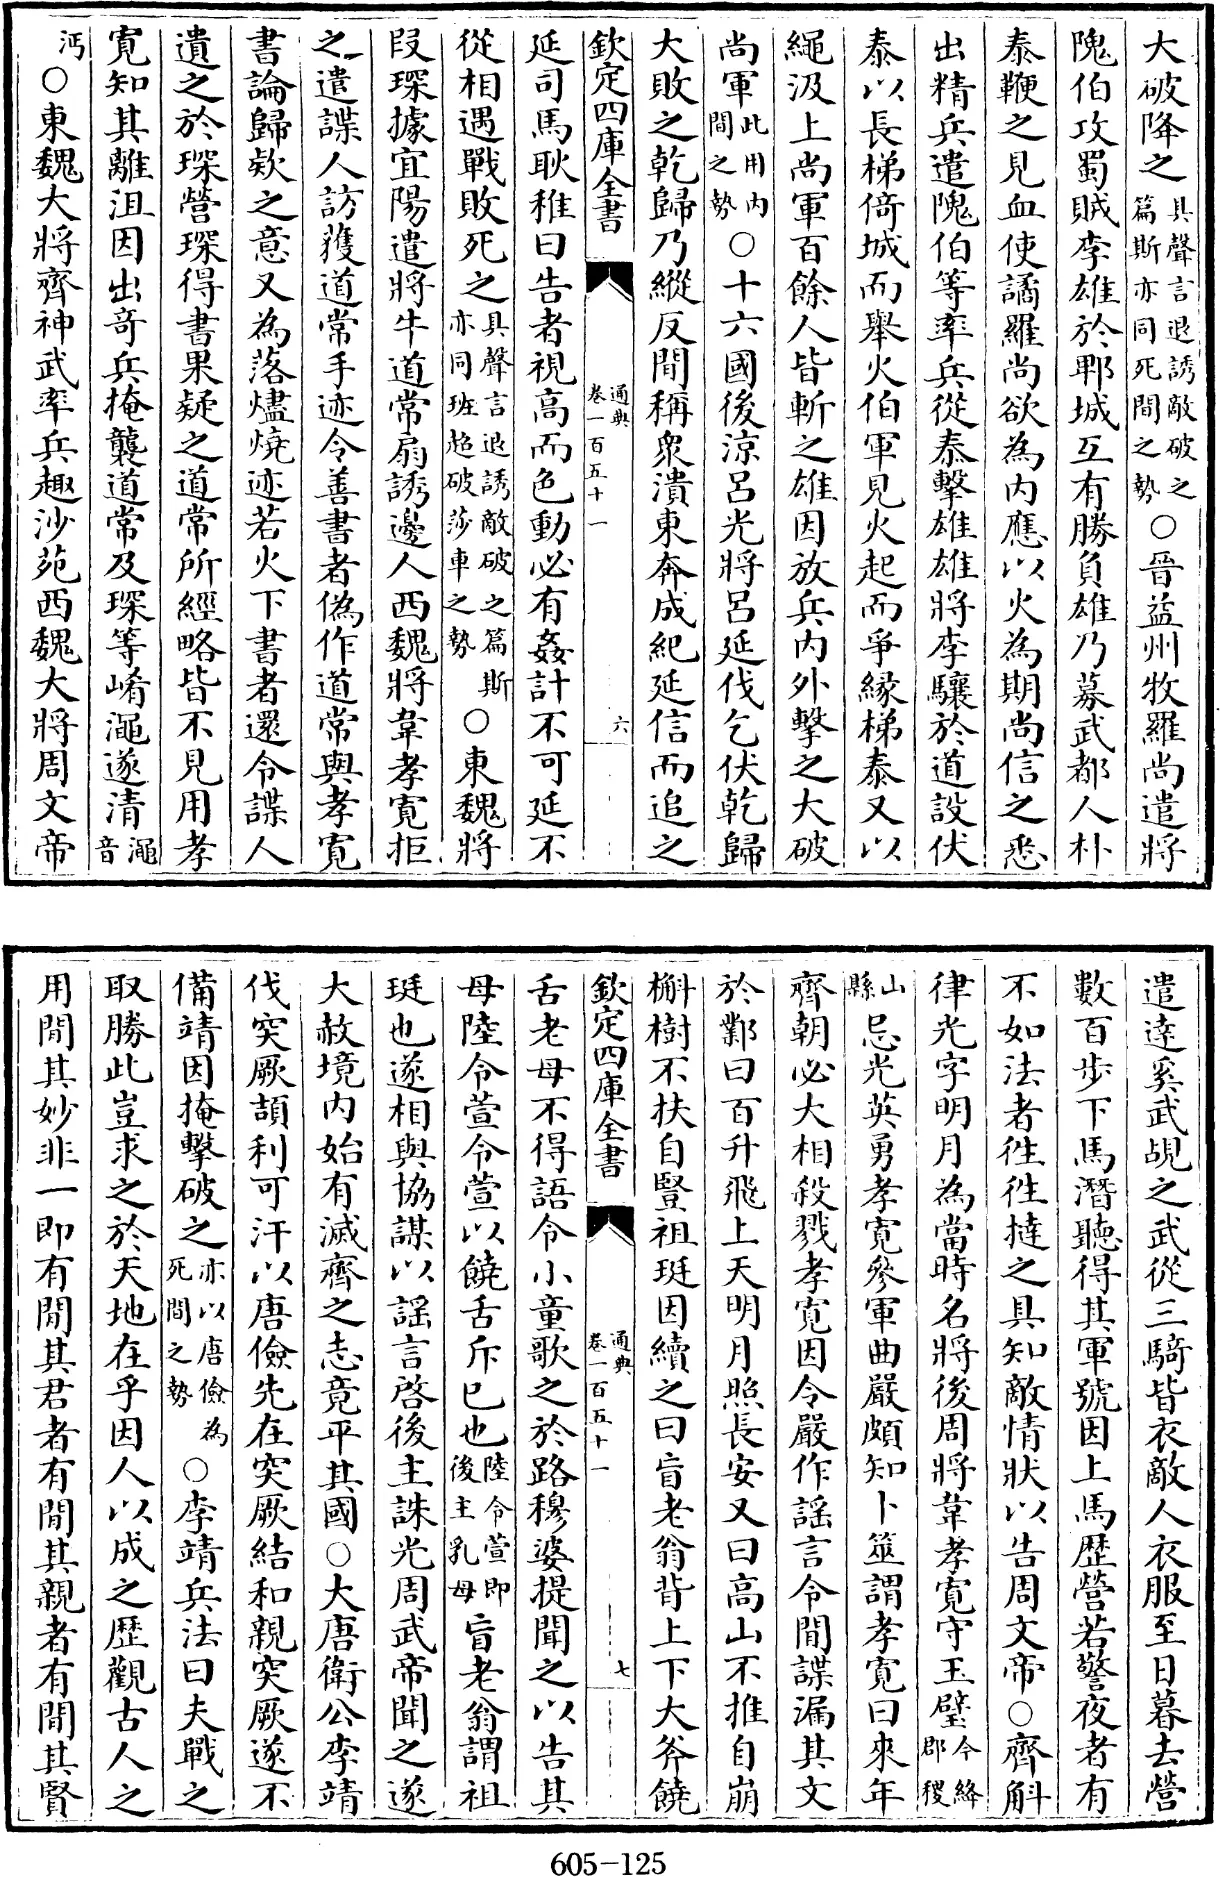 大破降之具聲言退誘敵破之篇斯亦同死間之勢○晉益州牧羅尚遣將
隗伯攻蜀賊李雄於郫城互有勝負雄乃募武都人朴
泰鞭之見血使譎羅尚欲為内應以火為期尚信之悉
出精兵遣隗伯等率兵從泰擊雄雄將李驤於道設伏
泰以長梯倚城而舉火伯軍見火起而爭縁梯泰又以
繩汲上尚軍百餘人皆斬之雄因放兵内外擊之大破
尚軍此用内間之勢○十六國後涼呂光將呂延伐乞伏乾歸
大敗之乾歸乃縱反間稱衆潰東奔成紀延信而追之
欽定四庫全書 通典卷一百五十一 六
延司馬耿稚曰告者視高而色動必有姦計不可延不
從相遇戰敗死之具聲言退誘敵破之篇斯亦同班超破莎車之勢○東魏將
段琛據宜陽遣將牛道常扇誘邊人西魏將韋孝寛拒
之遣諜人訪獲道常手迹令善書者偽作道常與孝寛
書論歸欵之意又為落燼燒迹若火下書者還令諜人
遺之於琛營琛得書果疑之道常所經略皆不見用孝
寛知其離沮因出竒兵掩襲道常及琛等崤澠遂清澠音
沔○東魏大將齊神武率兵趣沙苑西魏大將周文帝
遣逹奚武覘之武從三騎皆衣敵人衣服至日暮去營
數百步下馬潛聽得其軍號因上馬歴營若警夜者有
不如法者徃徃撻之具知敵情狀以告周文帝○齊斛
律光字明月為當時名將後周將韋孝寛守玉璧今絳郡稷
山縣忌光英勇孝寛參軍曲嚴頗知卜筮謂孝寛曰來年
齊朝必大相殺戮孝寛因令嚴作謡言令間諜漏其文
於鄴曰百升飛上天明月照長安又曰高山不推自崩
槲樹不扶自豎祖珽因續之曰盲老翁背上下大斧饒
欽定四庫全書 通典卷一百五十一 七
舌老母不得語令小童歌之於路穆婆提聞之以告其
母陸令萱令萱以饒舌斥已也陸令萱即後主乳母盲老翁謂祖
珽也遂相與協謀以謡言啓後主誅光周武帝聞之遂
大赦境内始有滅齊之志竟平其國○大唐衛公李靖
伐突厥頡利可汗以唐儉先在突厥結和親突厥遂不
備靖因掩擊破之亦以唐儉為死間之勢○李靖兵法曰夫戰之
取勝此豈求之於天地在乎因人以成之歴觀古人之
用間其妙非一即有間其君者有間其親者有間其賢
605-125